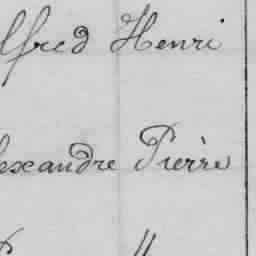 lfred Henri
exandre Pierre
"